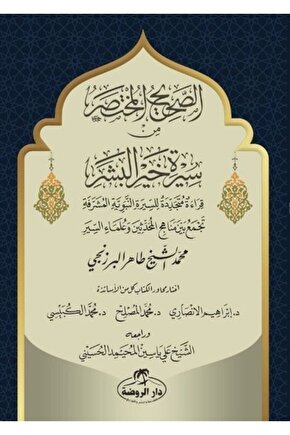 الصحيح المختصر
من
سيرة خير البشر
قراءة متجددة للسيرة النبوية المشرفة
تجمع بين مناهج المحدثين وعلماء السير
محمد الشيخ طاهر البرزنجي
اختار محاور الكتاب كل من الأساتذة
د. إبراهيم الأنصاري د. محمد المصلح د. محمد الكبيسي
وراجعه
الشيخ علي ياسين المحيمد الحسيني
دار الروضة